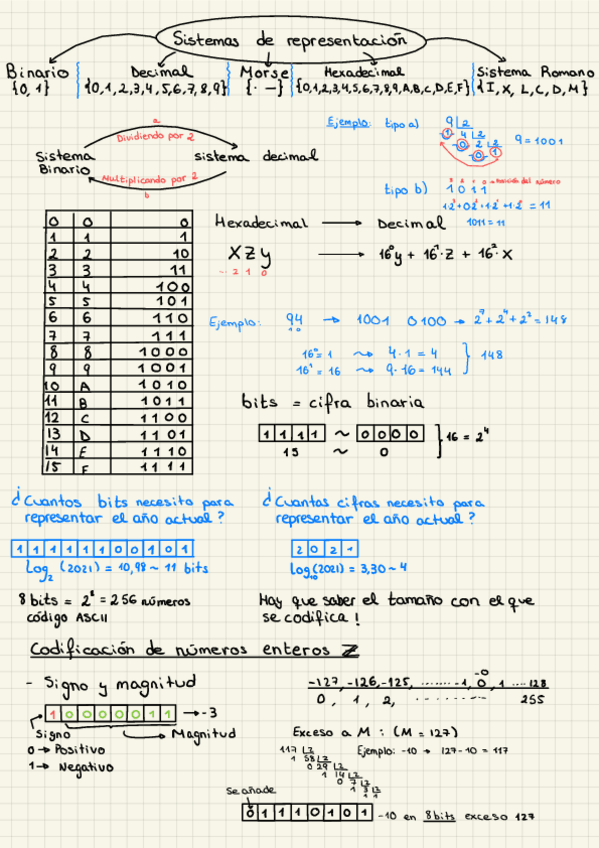 Sistemas de representación
Binario
{0, 1}
Decimal
{0,1,2,3,4,5,6,7,8,9}
Morse
{· —}
Hexadecimal
{0,1,2,3,4,5,6,7,8,9,A,B,C,D,E,F}
Sistema Romano
{I, X, L, C, D, M}
a
Dividiendo por 2
Sistema Binario
sistema decimal
Multiplicando por 2
b
Ejemplo: tipo a)
9 |2
1 4 |2
0 2 |2
0 1
9 = 1001
tipo b)
3 2 1 0 → posición del número
1 0 1 1
1·2³+0·2²+1·2¹+1·2⁰ = 11
1011 = 11
0 0 0
1 1 1
2 2 10
3 3 11
4 4 100
5 5 101
6 6 110
7 7 111
8 8 1000
9 9 1001
10 A 1010
11 B 1011
12 C 1100
13 D 1101
14 E 1110
15 F 1111
Hexadecimal → Decimal
X Z y → 16⁰y + 16¹·Z + 16²·X
... 2 1 0
Ejemplo: 94 → 1001 0100 → 2⁷+2⁴+2² = 148
1 0
16⁰ = 1 ⇝ 4·1 = 4
16¹ = 16 ⇝ 9·16 = 144
} 148
bits = cifra binaria
1 1 1 1 ~ 0 0 0 0
15 ~ 0
} 16 = 2⁴
¿Cuantos bits necesito para
representar el año actual?
1 1 1 1 1 1 0 0 1 0 1
Log₂ (2021) = 10,98 ~ 11 bits
8 bits = 2⁸ = 256 números
código ASCII
¿Cuantas cifras necesito para
representar el año actual?
2 0 2 1
Log₁₀(2021) = 3,30 ~ 4
Hay que saber el tamaño con el que
se codifica!
Codificación de números enteros Z
- Signo y magnitud
1 0 0 0 0 0 1 1 → -3
Signo
Magnitud
0 → Positivo
1 → Negativo
-0
-127, -126, -125, ........ -1, 0, 1 .... 128
0, 1, 2, ........ 255
Exceso a M : (M = 127)
117 |2
1 58 |2
0 29 |2
1 14 |2
0 7 |2
1 3 |2
1 1
Ejemplo: -10 → 127-10 = 117
Se añade
0 1 1 1 0 1 0 1 -10 en 8 bits exceso 127